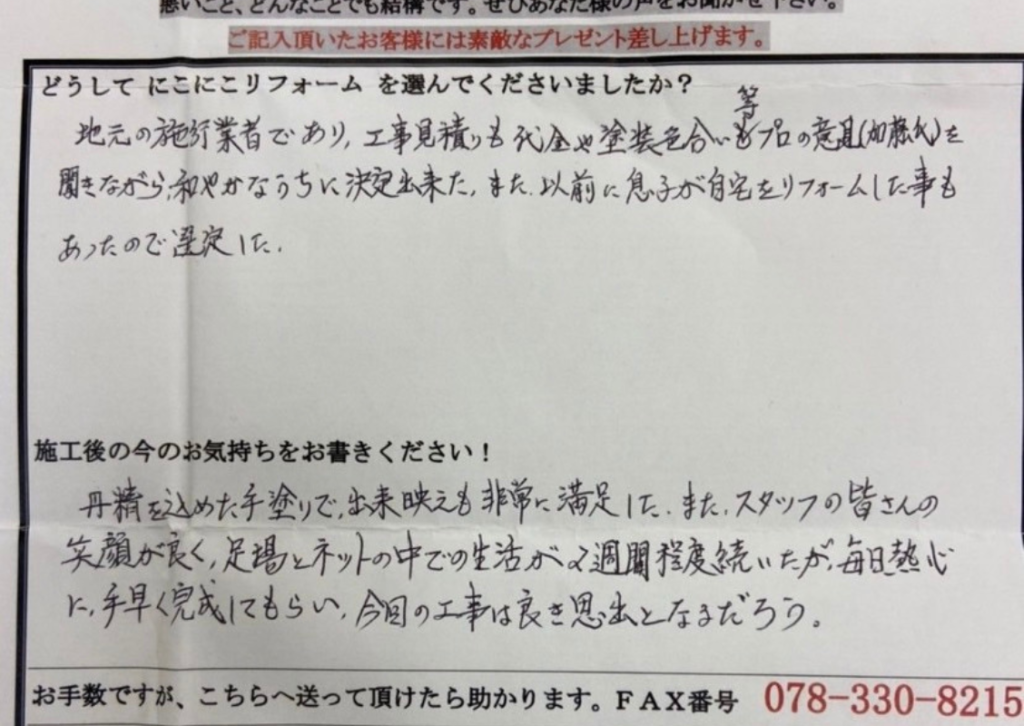 悪いこと、どんなことでも結構です。ぜひあなた様の声をお聞かせ下さい。
ご記入頂いたお客様には素敵なプレゼント差し上げます。
どうして にこにこリフォーム を選んでくださいましたか？
地元の施行業者であり、工事見積りも代金や塗装色合い等もプロの意見(加藤氏)を
聞きながら、和やかなうちに決定出来た。また、以前に息子が自宅をリフォームした事も
あったので選定した。
施工後の今のお気持ちをお書きください！
丹精を込めた手塗りで、出来映えも非常に満足した。また、スタッフの皆さんの
笑顔が良く、足場とネットの中での生活が2週間程度続いたが、毎日熱心
に、手早く完成してもらい、今回の工事は良き思出となるだろう。
お手数ですが、こちらへ送って頂けたら助かります。ＦＡＸ番号 078-330-8215